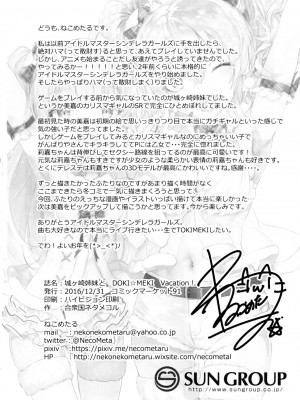 どうも、ねこめたるです。
私は以前アイドルマスターシンデレラガールズに手を出したら、
絶対ハマる(って散財する)と思って、あえてプレイしていませんでした。
しかし、アニメも始まることだし友達がやろうと誘ってきたので、
やってみるかー！！！！と思い、2年前くらいに本格的に
アイドルマスターシンデレラガールズをやり始めました。
そしたらやっぱりハマ(って散財しま)りました。
ゲームをプレイする前から気になっていたのが城ヶ崎姉妹でした。
というか美嘉のカリスマギャルのSRで完全にひとめぼれしてました。
最初見た時の美嘉の絵で思いっきりつり目で本当にガチギャルといった感じで
気の強い子だと思ってました。
しかしゲームをプレイしてみるとカリスマギャルなのにめっちゃいい子で
がんばりやさんでキラキラしててPには乙女で…完全に惚れました。
莉嘉ちゃんは背伸びしてセクシー路線を狙ってるのが最高に可愛いです！
元気な莉嘉ちゃんもすきですが少女のような柔らかい表情の莉嘉ちゃんも好きです。
とくにデレステは莉嘉ちゃんの3Dモデルが最高にかわいいですね。感謝……
ずっと描きたかったふたりなのですがあまり描く時間がなく
ここまできたら冬コミで一気に描きまくろうと思って、
今回、ふたりのえっちな漫画やイラストいっぱい描けて本当に楽しかった…
次は美嘉をピックアップして描こうかと思ってます。今から楽しみです。
ありがとうアイドルマスターシンデレラガールズ。
曲も大好きなので本当にライブ行きたい…一生でTOKIMEKIしたい。
では！よいお年を(*>_<*)ﾉ
誌名：城ヶ崎姉妹と、DOKI☆MEKI Vacation！
発行：2016/12/31 コミックマーケット91
印刷：ハイビジョン印刷
作：合衆国ネタメコル
ねこめたる
mail：nekonekometaru@yahoo.co.jp
twitter：@NecoMeta
pixiv：https://pixiv.me/necometaru
hp：http://nekonekometaru.wixsite.com/necometal
SUN GROUP